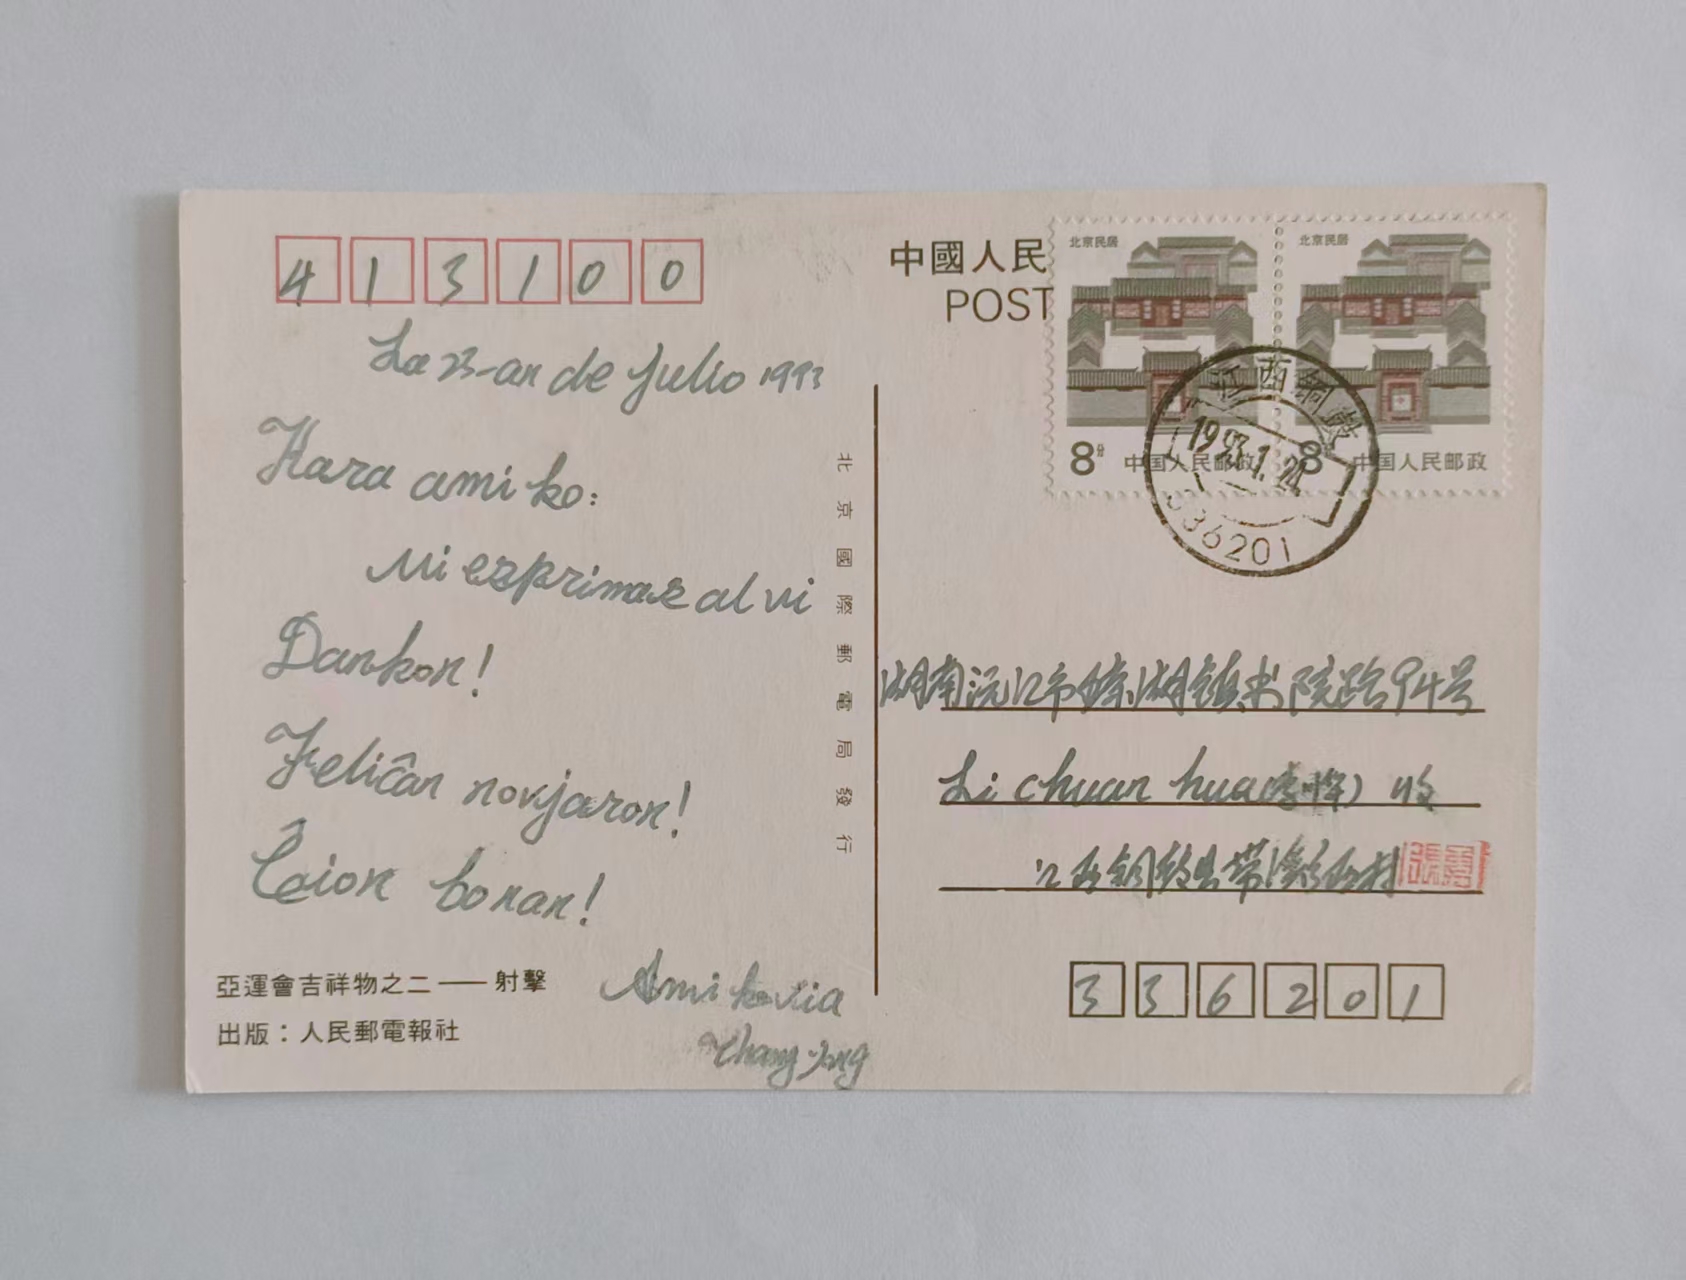 413100
La 23-an de Julio 1993
Kara amiko:
Mi esprimas al vi
Dankon!
Feliĉan novjaron!
Ĉion bonan!
Amike via
Zhang Yong
亞運會吉祥物之二——射擊
出版：人民郵電報社
北京國際郵電局發行
中國人民
POST
北京民居
8分 中国人民邮政
北京民居
8 中国人民邮政
江西銅鼓
1993.1.24
336201
湖南沅江市琼湖镇书院路94号
Li chuan hua 收
江西铜鼓县带溪
張勇
336201